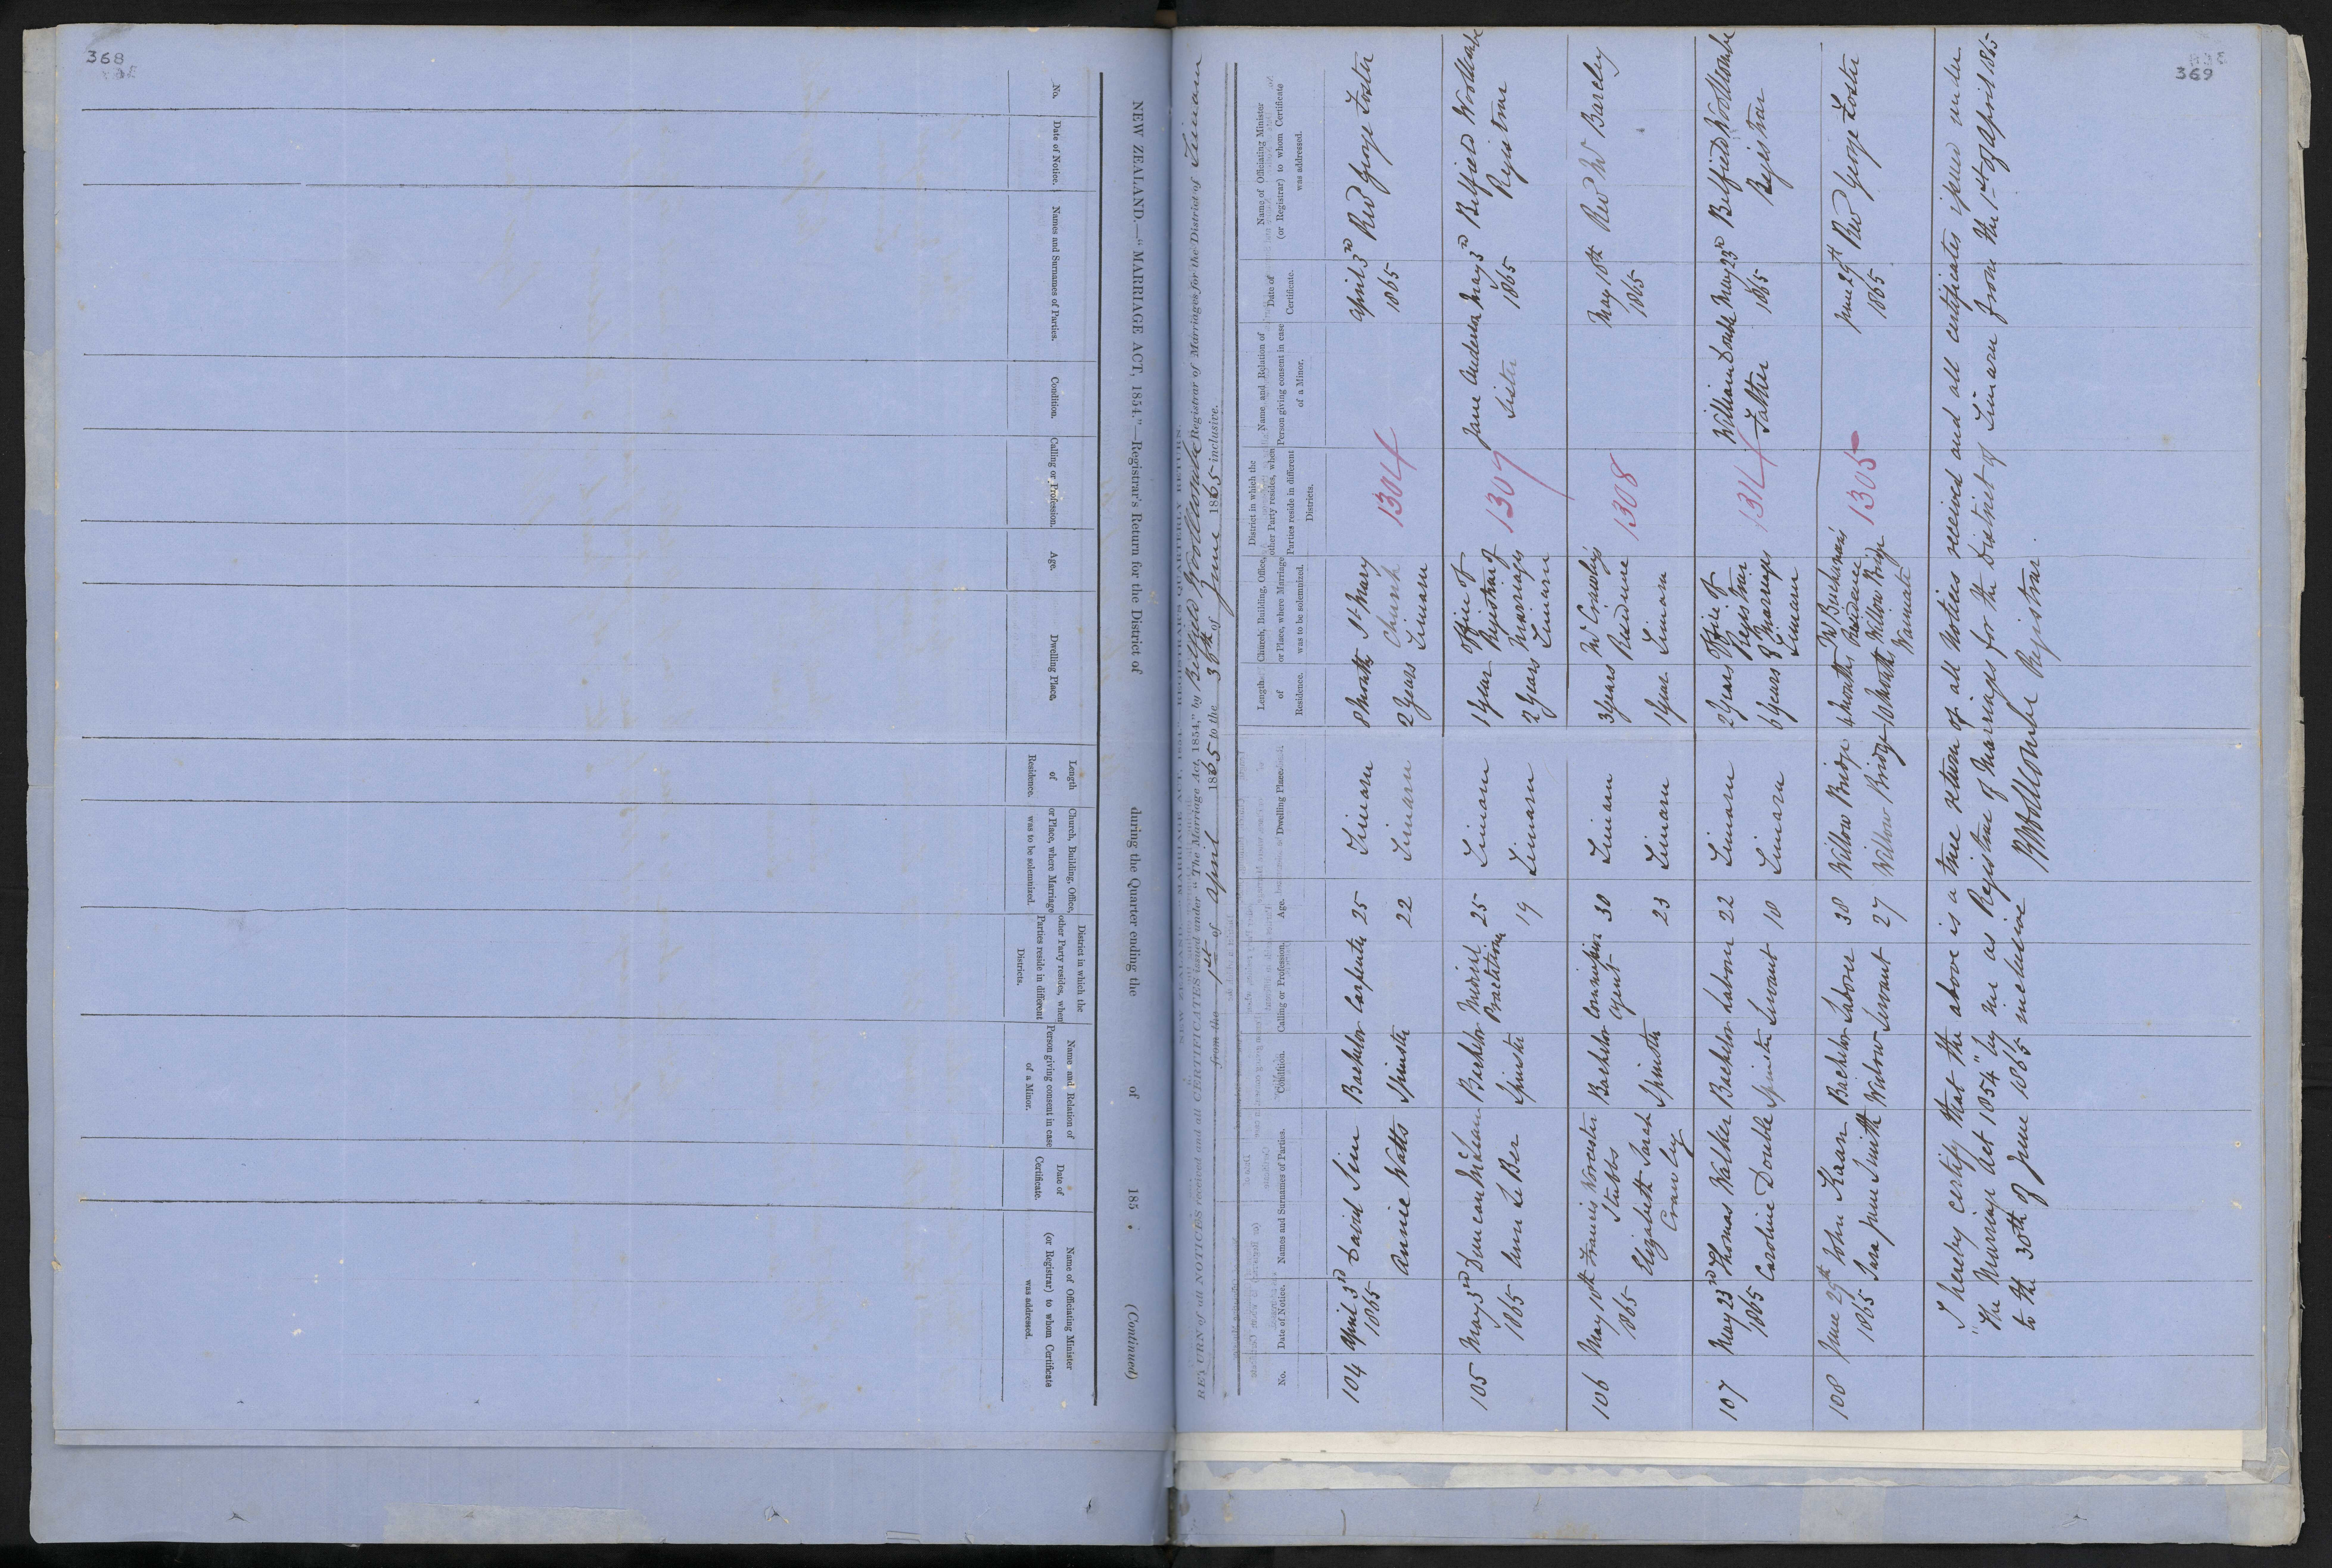 368
NEW ZEALAND.—"MARRIAGE ACT, 1854."—Registrar's Return for the District of during the Quarter ending the of 185 . (Continued)
No.
Date of Notice.
Names and Surnames of Parties.
Condition.
Calling or Profession.
Age.
Dwelling Place.
Length
of
Residence.
Church, Building, Office,
or Place, where Marriage
was to be solemnized.
District in which the
other Party resides, when
Parties reside in different
Districts.
Name and Relation of
Person giving consent in case
of a Minor.
Date of
Certificate.
Name of Officiating Minister
(or Registrar) to whom Certificate
was addressed.
369
NEW ZEALAND "MARRIAGE ACT, 1854." REGISTRAR'S QUARTERLY RETURN.
RETURN of all NOTICES received and all CERTIFICATES issued under "The Marriage Act, 1854," by Belfield Woollcombe Registrar of Marriages for the District of Timaru
from the 1st of April 1865 to the 30th of June 1865 inclusive.
No.
Date of Notice.
Names and Surnames of Parties.
Condition.
Calling or Profession.
Age.
Dwelling Place.
Length
of
Residence.
Church, Building, Office,
or Place, where Marriage
was to be solemnized.
District in which the
other Party resides, when
Parties reside in different
Districts.
Name and Relation of
Person giving consent in case
of a Minor.
Date of
Certificate.
Name of Officiating Minister
(or Registrar) to whom Certificate
was addressed.
104 April 3rd David Sim Bachelor Carpenter 25 Timaru 8 Months St Mary April 3rd Rev George Foster
1865 Church 1304 1865
Annie Watts Spinster 22 Timaru 2 Years Timaru
105 May 3rd Duncan McLean Bachelor Medical 25 Timaru 1 Year Office of Jane Anderson May 3rd Belfield Woollcombe
Practitioner Registrar of 1307 Sister 1865 Registrar
1865 Ann Le Ber Spinster 19 Timaru 2 Years Marriages
Timaru
106 May 10th Francis Worcester Bachelor Commission 30 Timaru 3 years Mr Crawley's May 10th Rev W Barcley
1865 Stubbs Agent Residence 1308 1865
Elizabeth Sarah Spinster 23 Timaru 1 Year Timaru
Crawley
107 May 23rd Thomas Walker Bachelor Labour 22 Timaru 2 Years Office of William Double May 23rd Belfield Woollcombe
1865 Registrar 1314 Father 1865 Registrar
Caroline Double Spinster Servant 18 Timaru 6 years of Marriages
Timaru
108 June 29th John Bachelor Labour 38 Willow Bridge 4 months Mr Buchanan's June 29th Rev George Foster
Residence 1305 1865
1865 Jane Smith Widow Servant 27 Willow Bridge Months Willow Bridge
Waimate
I hereby certify that the above is a true return of all Notices received and all certificates issued under
"The Marriage Act 1854" by me as Registrar of Marriages for the District of Timaru from the 1st of April 1865
to the 30th of June 1865 inclusive
B Woollcombe Registrar.